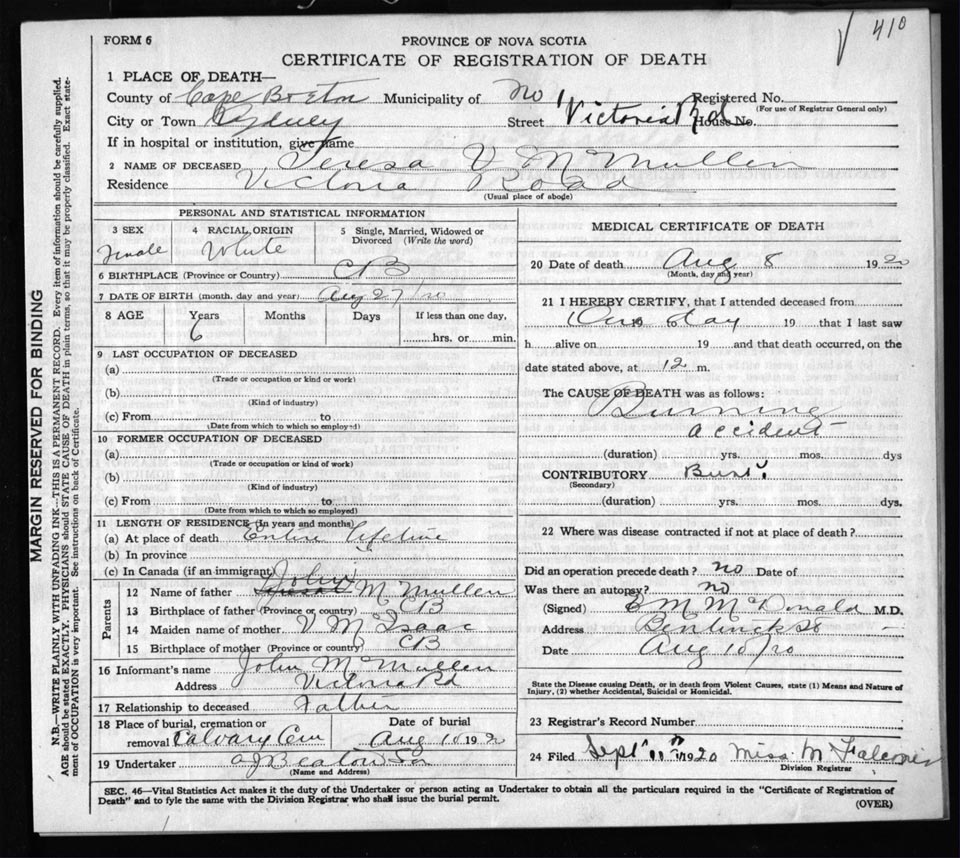 410
FORM 6
PROVINCE OF NOVA SCOTIA
CERTIFICATE OF REGISTRATION OF DEATH
1 PLACE OF DEATH—
County of Cape Breton Municipality of No 1 Registered No.
(For use of Registrar General only)
City or Town Sydney Street Victoria Rd House No.
If in hospital or institution, give name
2 NAME OF DECEASED Teresa V McMullen
Residence Victoria Road
(Usual place of abode)
PERSONAL AND STATISTICAL INFORMATION
3 SEX Female
4 RACIAL ORIGIN White
5 Single, Married, Widowed or Divorced (Write the word)
6 BIRTHPLACE (Province or Country) CB
7 DATE OF BIRTH (month, day and year) Aug 27/20
8 AGE Years Months Days If less than one day,
6 hrs. or min.
9 LAST OCCUPATION OF DECEASED
(a)
(Trade or occupation or kind or work)
(b)
(Kind of industry)
(c) From to
(Date from which to which so employed)
10 FORMER OCCUPATION OF DECEASED
(a)
(Trade or occupation or kind of work)
(b)
(Kind of industry)
(c) From to
(Date from which to which so employed)
11 LENGTH OF RESIDENCE (In years and months)
(a) At place of death Entire lifetime
(b) In province
(c) In Canada (if an immigrant)
Parents
12 Name of father John McMullen
13 Birthplace of father (Province or country) CB
14 Maiden name of mother V McIsaac
15 Birthplace of mother (Province or country) CB
16 Informant's name John McMullen
Address Victoria Rd
17 Relationship to deceased Father
18 Place of burial, cremation or removal Calvary Cem Date of burial Aug 10 1920
19 Undertaker A J Beaton & Son
(Name and Address)
MEDICAL CERTIFICATE OF DEATH
20 Date of death Aug 8 1920
(Month, day and year)
21 I HEREBY CERTIFY, that I attended deceased from
One day 19 to 19 that I last saw
h alive on 19 and that death occurred, on the
date stated above, at 12 m.
The CAUSE OF DEATH was as follows:
Burning
accident
(duration) yrs. mos. days
CONTRIBUTORY
(Secondary)
(duration) yrs. mos. dys.
22 Where was disease contracted if not at place of death?
Did an operation precede death? no Date of
Was there an autopsy? no
(Signed) McDonald M.D.
Address Bentinck St
Date Aug 10/20
State the Disease causing Death, or in death from Violent Causes, state (1) Means and Nature of
Injury, (2) whether Accidental, Suicidal or Homicidal.
23 Registrar's Record Number
24 Filed Sept 11th 1920 Miss M Falconer
Division Registrar
SEC. 46—Vital Statistics Act makes it the duty of the Undertaker or person acting as Undertaker to obtain all the particulars required in the "Certificate of Registration of
Death" and to fyle the same with the Division Registrar who shall issue the burial permit.
(OVER)
MARGIN RESERVED FOR BINDING
N.B.—WRITE PLAINLY WITH UNFADING INK—THIS IS A PERMANENT RECORD. Every item of information should be carefully supplied.
AGE should be stated EXACTLY. PHYSICIANS should STATE CAUSE OF DEATH in plain terms, so that it may be properly classified. Exact state-
ment of OCCUPATION is very important. See instructions on back of Certificate.